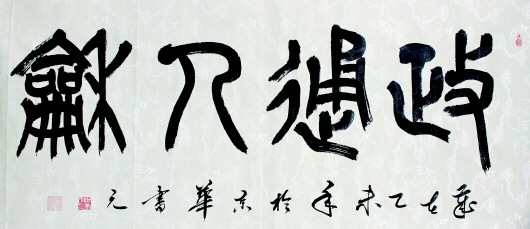 政通人龢
歲在乙未年於京華書元